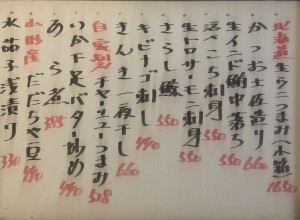 北海道 生うにつまみ(木箱) 1650
かつお土佐造り 660
生インド鮪中落ち 550
活たこ刺身 550
生トロサーモン刺身 550
さらし鯨 550
キビナゴ刺し 550
きんき一夜干し 660
自家製 チャーシューつまみ 528
いか下足バター炒め 440
あら煮 385
山形産 だだちゃ豆 440
水茄子浅漬り 330